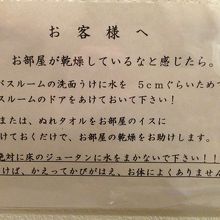 お客様へ
お部屋が乾燥しているなと感じたら。
バスルームの洗面うけに水を 5cmぐらいためて
スルームのドアをあけておいて下さい！
または、ぬれタオルをお部屋のイスに
けておくだけで、お部屋の乾燥をお助けします。
絶対に床のジュータンに水をまかないで下さい！！
けば、かえってかびがはえ、お体によくありません